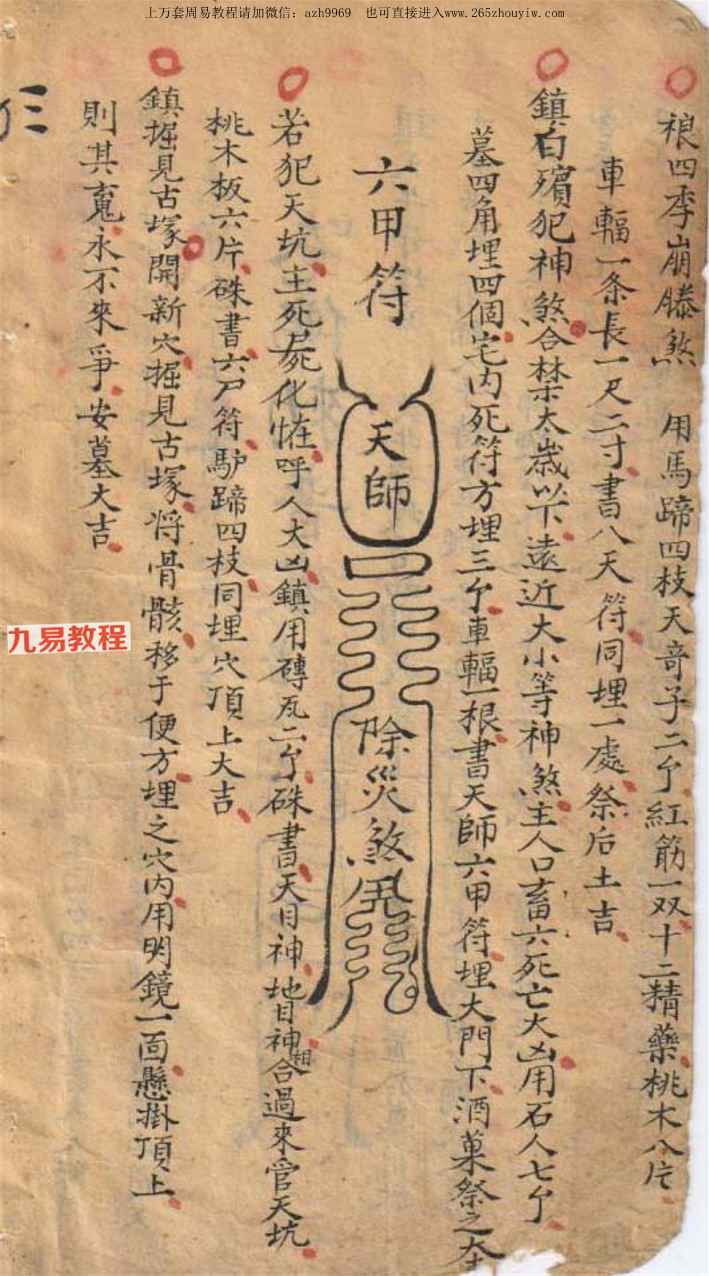 上万套周易教程请加微信：azh9969 也可直接进入www.265zhouyiw.com
四季崩騰煞 用馬蹄四枝天奇子二个紅筋一双十二精藥桃木八片
車輻一条長一尺二寸書八天符同埋一處祭后土吉
鎮白殯犯神煞合禁太歲以下遠近大小等神煞主人口畜六死亡大凶用石人七个
墓四角埋四個宅內死符方埋三个車輻一根書天師六甲符埋大門下酒菓祭之大
六甲符
天師
除災煞
若犯天坑主死屍化恠呼人大凶鎮用磚瓦二个硃書天目神地目神相合過來官天坑
桃木板六片硃書六尸符馿蹄四枝同埋穴頂上大吉
鎮掘見古塚開新穴掘見古塚將骨骸移于便方埋之穴內用明鏡一面懸掛頂上
則其寃永不來爭安墓大吉
九易教程